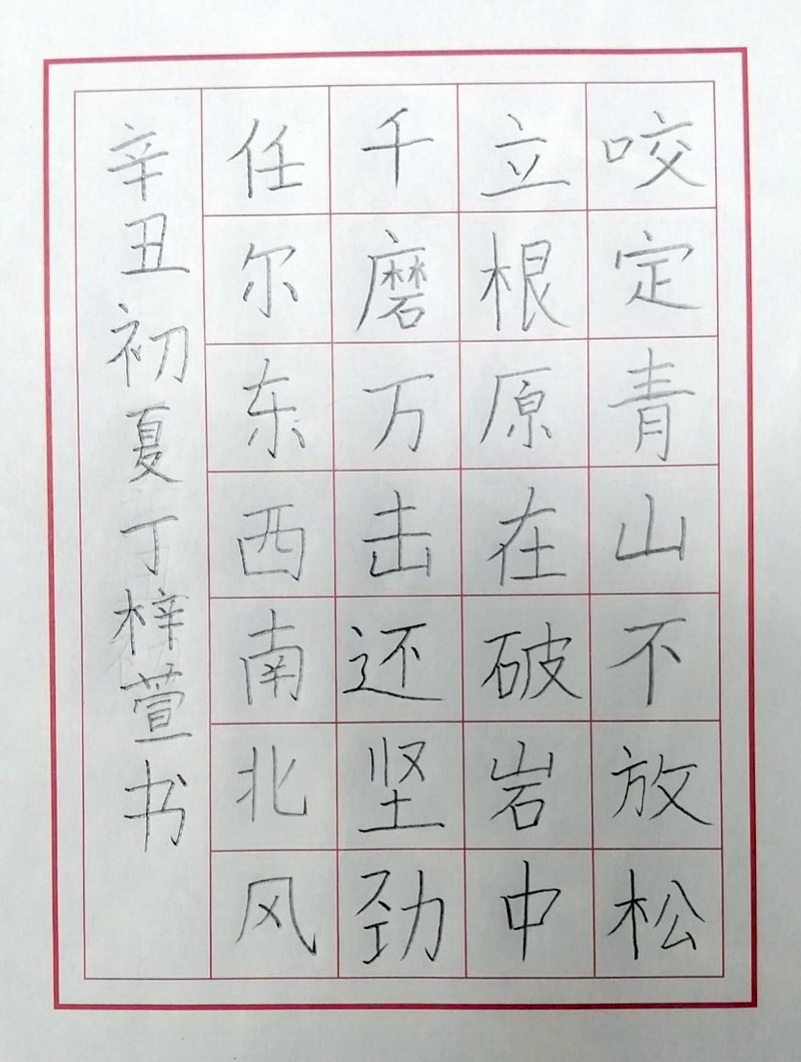 咬定青山不放松
立根原在破岩中
千磨万击还坚劲
任尔东西南北风
辛丑初夏丁梓萱书